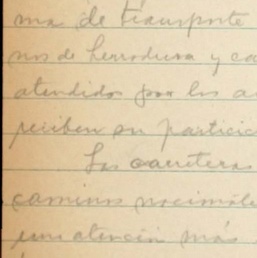 ma de transporte
nos de herradura y ca
atendidos por los a
reciben su particic
Las carreteras
caminos nacionale
una atención más